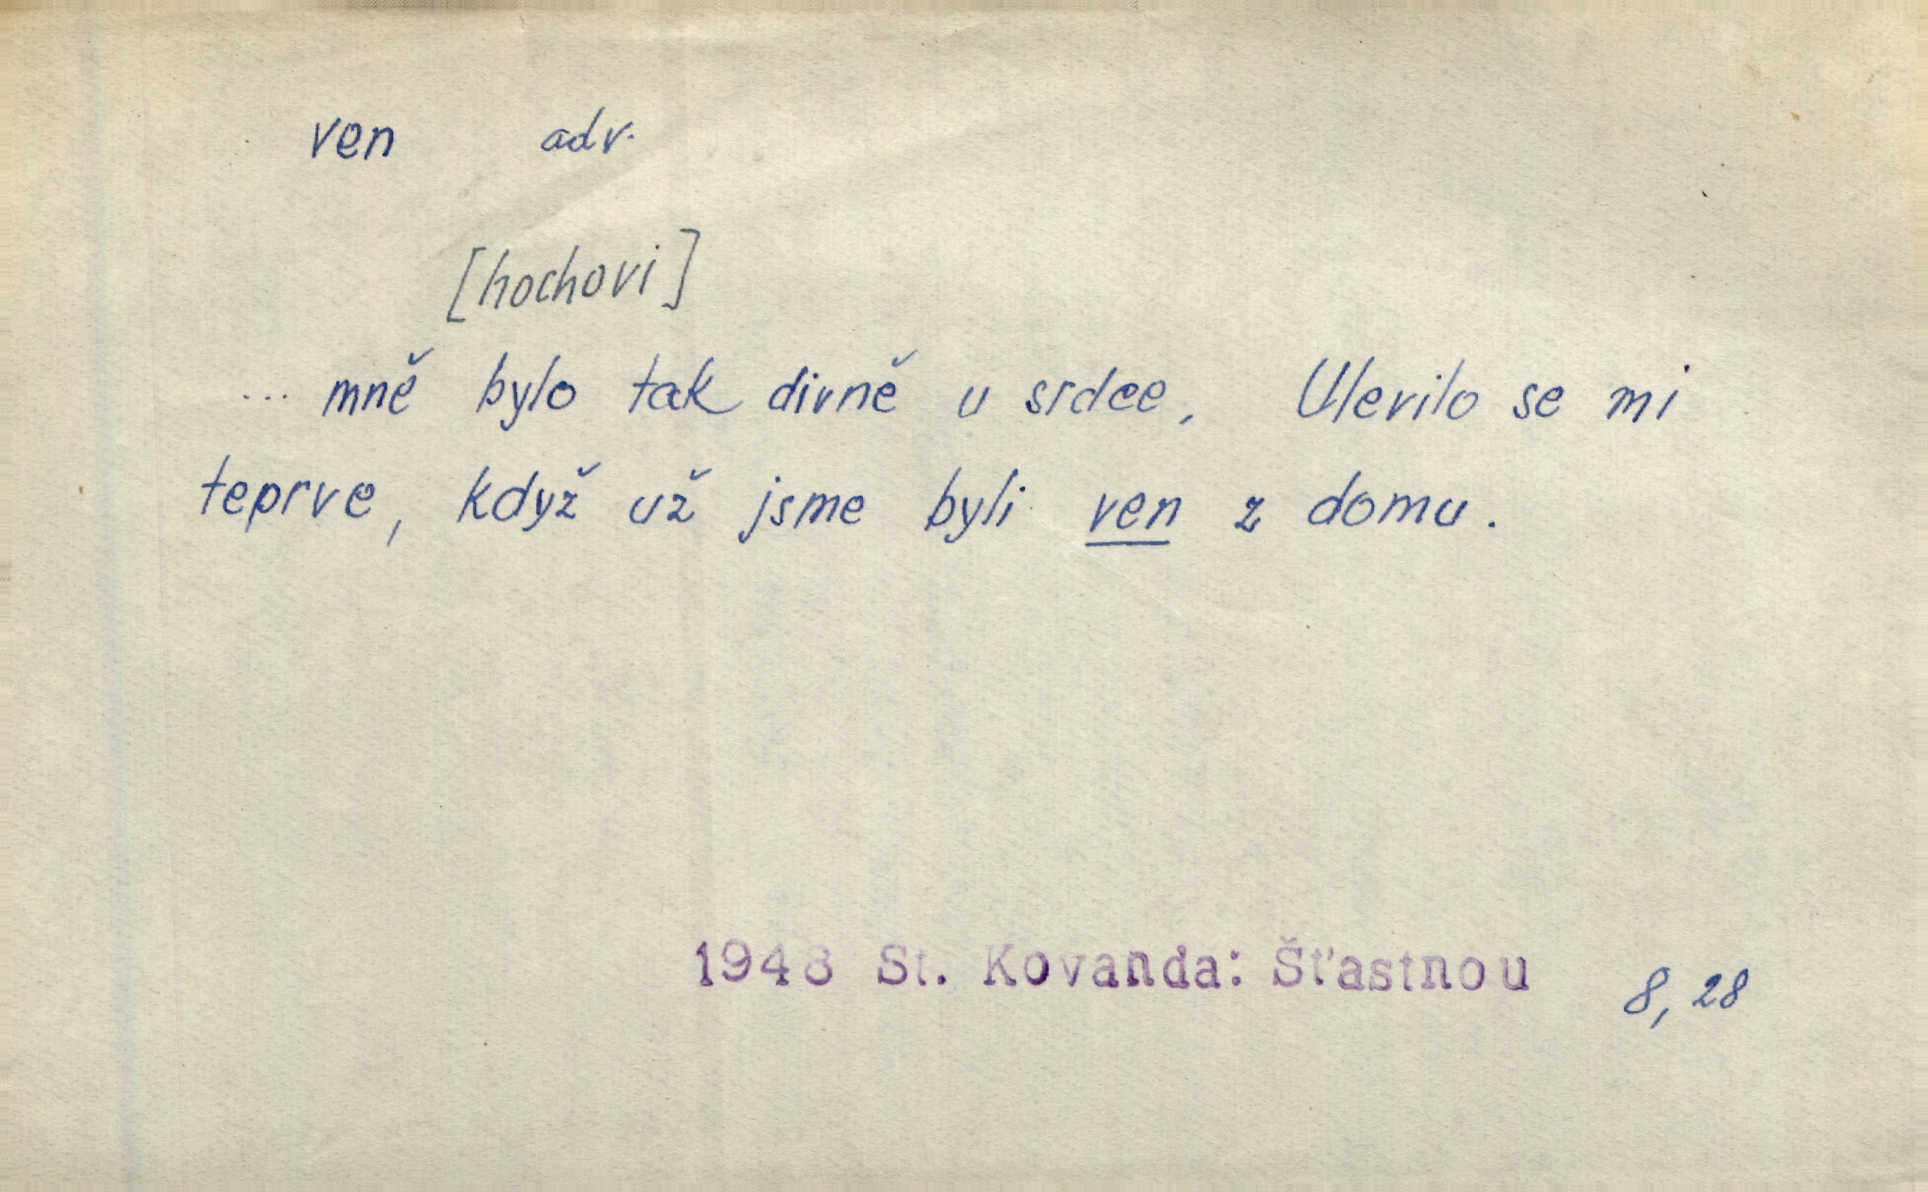 ven adv.
[hochovi]
... mně bylo tak divně u srdce. Ulevilo se mi
teprve, když už jsme byli ven z domu.
1948 St. Kovanda: Šťastnou 8, 28